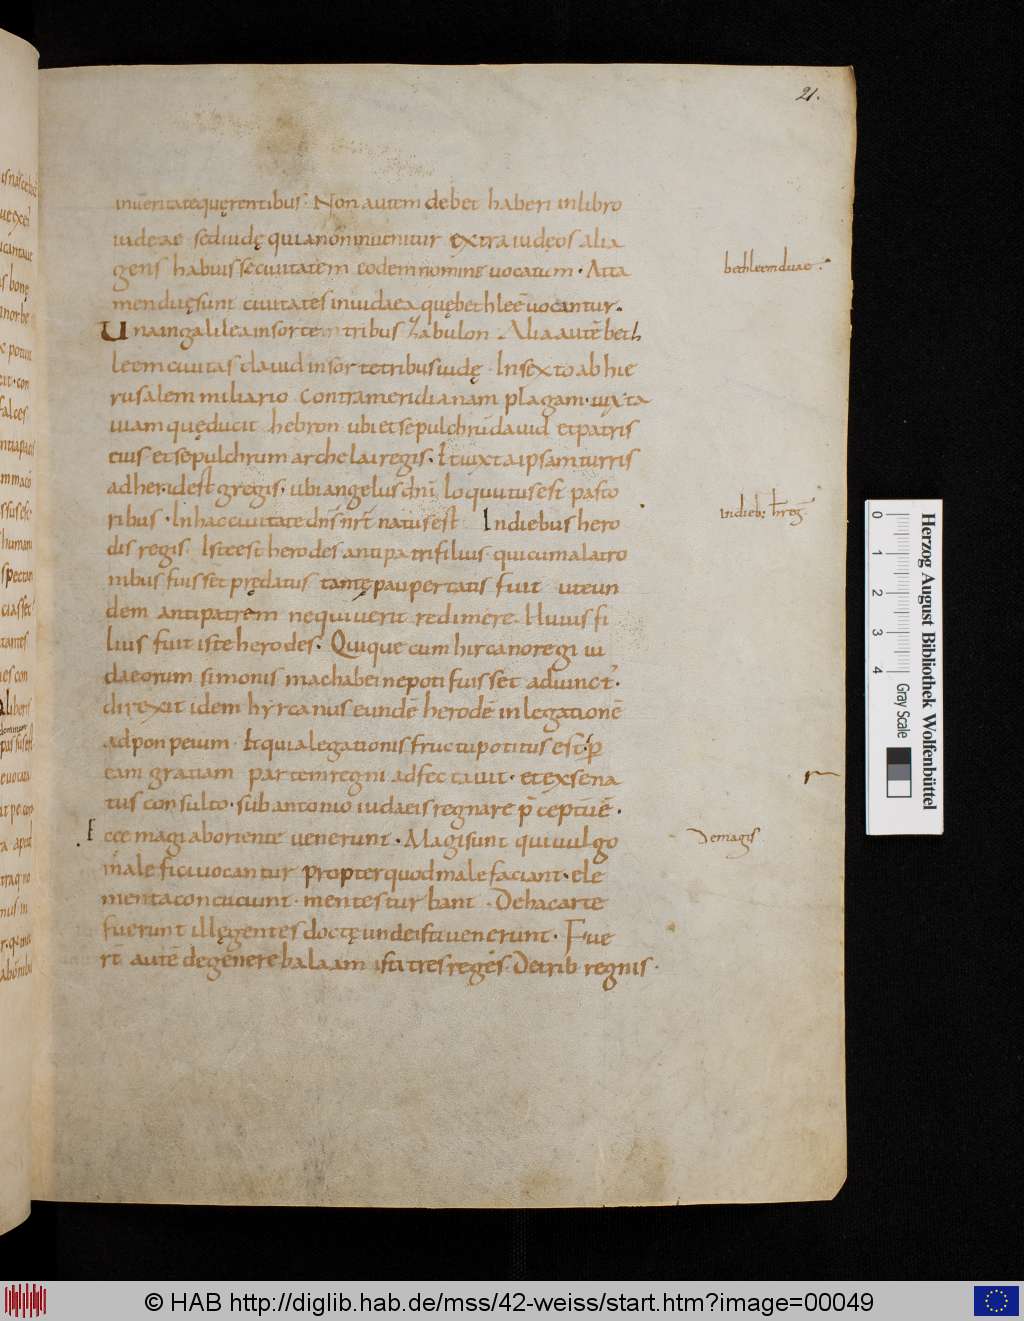 21.
inveritatequęrentibus· Non autem debet haberi inlibro
iudeae sediudę quianoninvenitur extraiudęos alia
gens habuissecivitatem eodemnomine vocatum· Atta
menduęsunt civitates iniudaea quębethleē vocantur.
Unaingalileainsortemtribus Zabulon. Aliaautē beth
leemcivitas david insortetribusiudę· Insextoabhie
rusalem miliario Contrameridianam plagam· iuxta
viamquęducit hebron ubietsepulchrū david etpatris
eius etsepulchrum archelairegis· Etiuxtaipsamturris
adher·idest gregis· ubiangelusdn̄i loquutusest pasto
ribus· Inhaccivitatedn̄s nr̄t natusest Indiebus hero
dis regis· Isteest herodes antipatrifilius· quicumalatro
nibus fuisset prędatus tantępaupertatis fuit uteun
dem antipatrem nequiverit redimere· Huius fi
lius fuit iste herodes· Quique cum hircanoregi iu
daeorum simonis machabeinepotifuisset adiunct᾿·
direxit idem hyrcanus eundē herodē inlegationē
adponpeium· Et quialegationisfructupotitus est· p̄
eam gratiam partemregni adfectavit· etexsena
tus consulto· subantonio iudaeisregnare p̄ ceptūē·
Ecce magi aboriente venerunt· Magisunt quivulgo
maleficivocantur propterquodmalefaciant· ele
mentaconcuciunt· mentesturbant· Dehacarte
fuerunt illęgentes doctęundeistivenerunt· Fue
rt̄ autē degenerebalaam isti tresreges· Detrib regnis·
bethleemduae·
indieb; h̄reg̅
Demagis
0 1 2 3 4
Gray Scale
Herzog August Bibliothek Wolfenbüttel
© HAB http://diglib.hab.de/mss/42-weiss/start.htm?image=00049